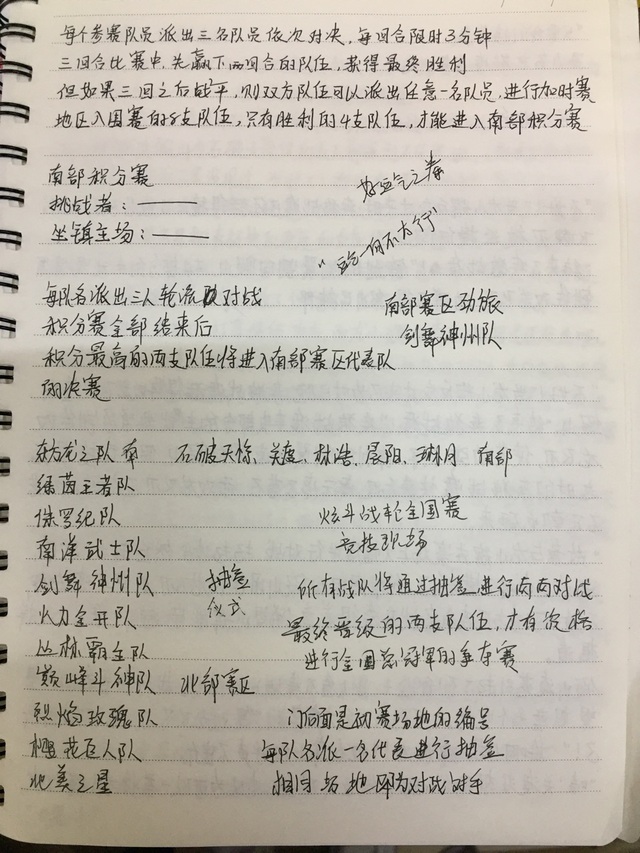 每个参赛队员派出三名队员依次对决,每回合限时3分钟
三回合比赛中,先赢下两回合的队伍,获得最终胜利
但如果三回之后战平,则双方队伍可以派出任意一名队员,进行加时赛
地区入围赛的8支队伍,只有胜利的4支队伍,才能进入南部积分赛
南部积分赛
好运气之春
挑战者:———
坐镇主场:———
一向不太行"
每队各派出三人轮流对战
南部赛区劲旅
积分赛全部结束后
剑舞神州队
积分最高的两支队伍将进入南部赛区代表队
的决赛
东方龙之队 石破天惊、关震、林浩、晨阳、琳月 南部
绿茵王者队
侏罗纪队
炫斗战轮全国赛
南洋武士队
竞技现场
剑舞神州队 抽签
所有战队将通过抽签进行两两对战
火力全开队 仪式
最终晋级的两支队伍,才有资格
丛林霸主队
进行全国总冠军的争夺赛
巅峰斗神队 北部赛区
烈焰玫瑰队 门后面是初赛场地的编号
樱花巨人队 每队各派一名代表进行抽签
北美之星 相同场地即为对战对手